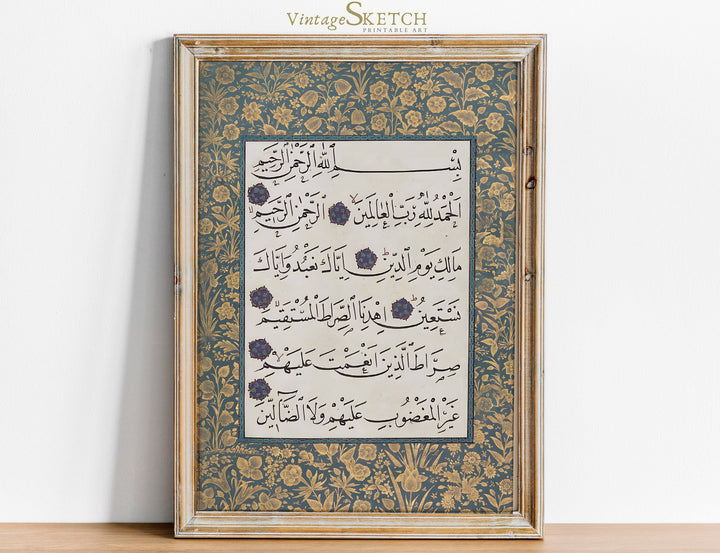 VintageSKETCH
PRINTABLE ART
بِسْمِ اللّٰهِ الرَّحْمٰنِ الرَّحِيمِ
اَلْحَمْدُ لِلّٰهِ رَبِّ الْعَالَمِينَ ۙ الرَّحْمٰنِ الرَّحِيمِ ۙ
مَالِكِ يَوْمِ الدِّينِ ۜ اِيَّاكَ نَعْبُدُ وَاِيَّاكَ
نَسْتَعِينُ ۜ اِهْدِنَا الصِّرَاطَ الْمُسْتَقِيمَ ۙ
صِرَاطَ الَّذِينَ اَنْعَمْتَ عَلَيْهِمْ ۙ
غَيْرِ الْمَغْضُوبِ عَلَيْهِمْ وَلَا الضَّالِّينَ